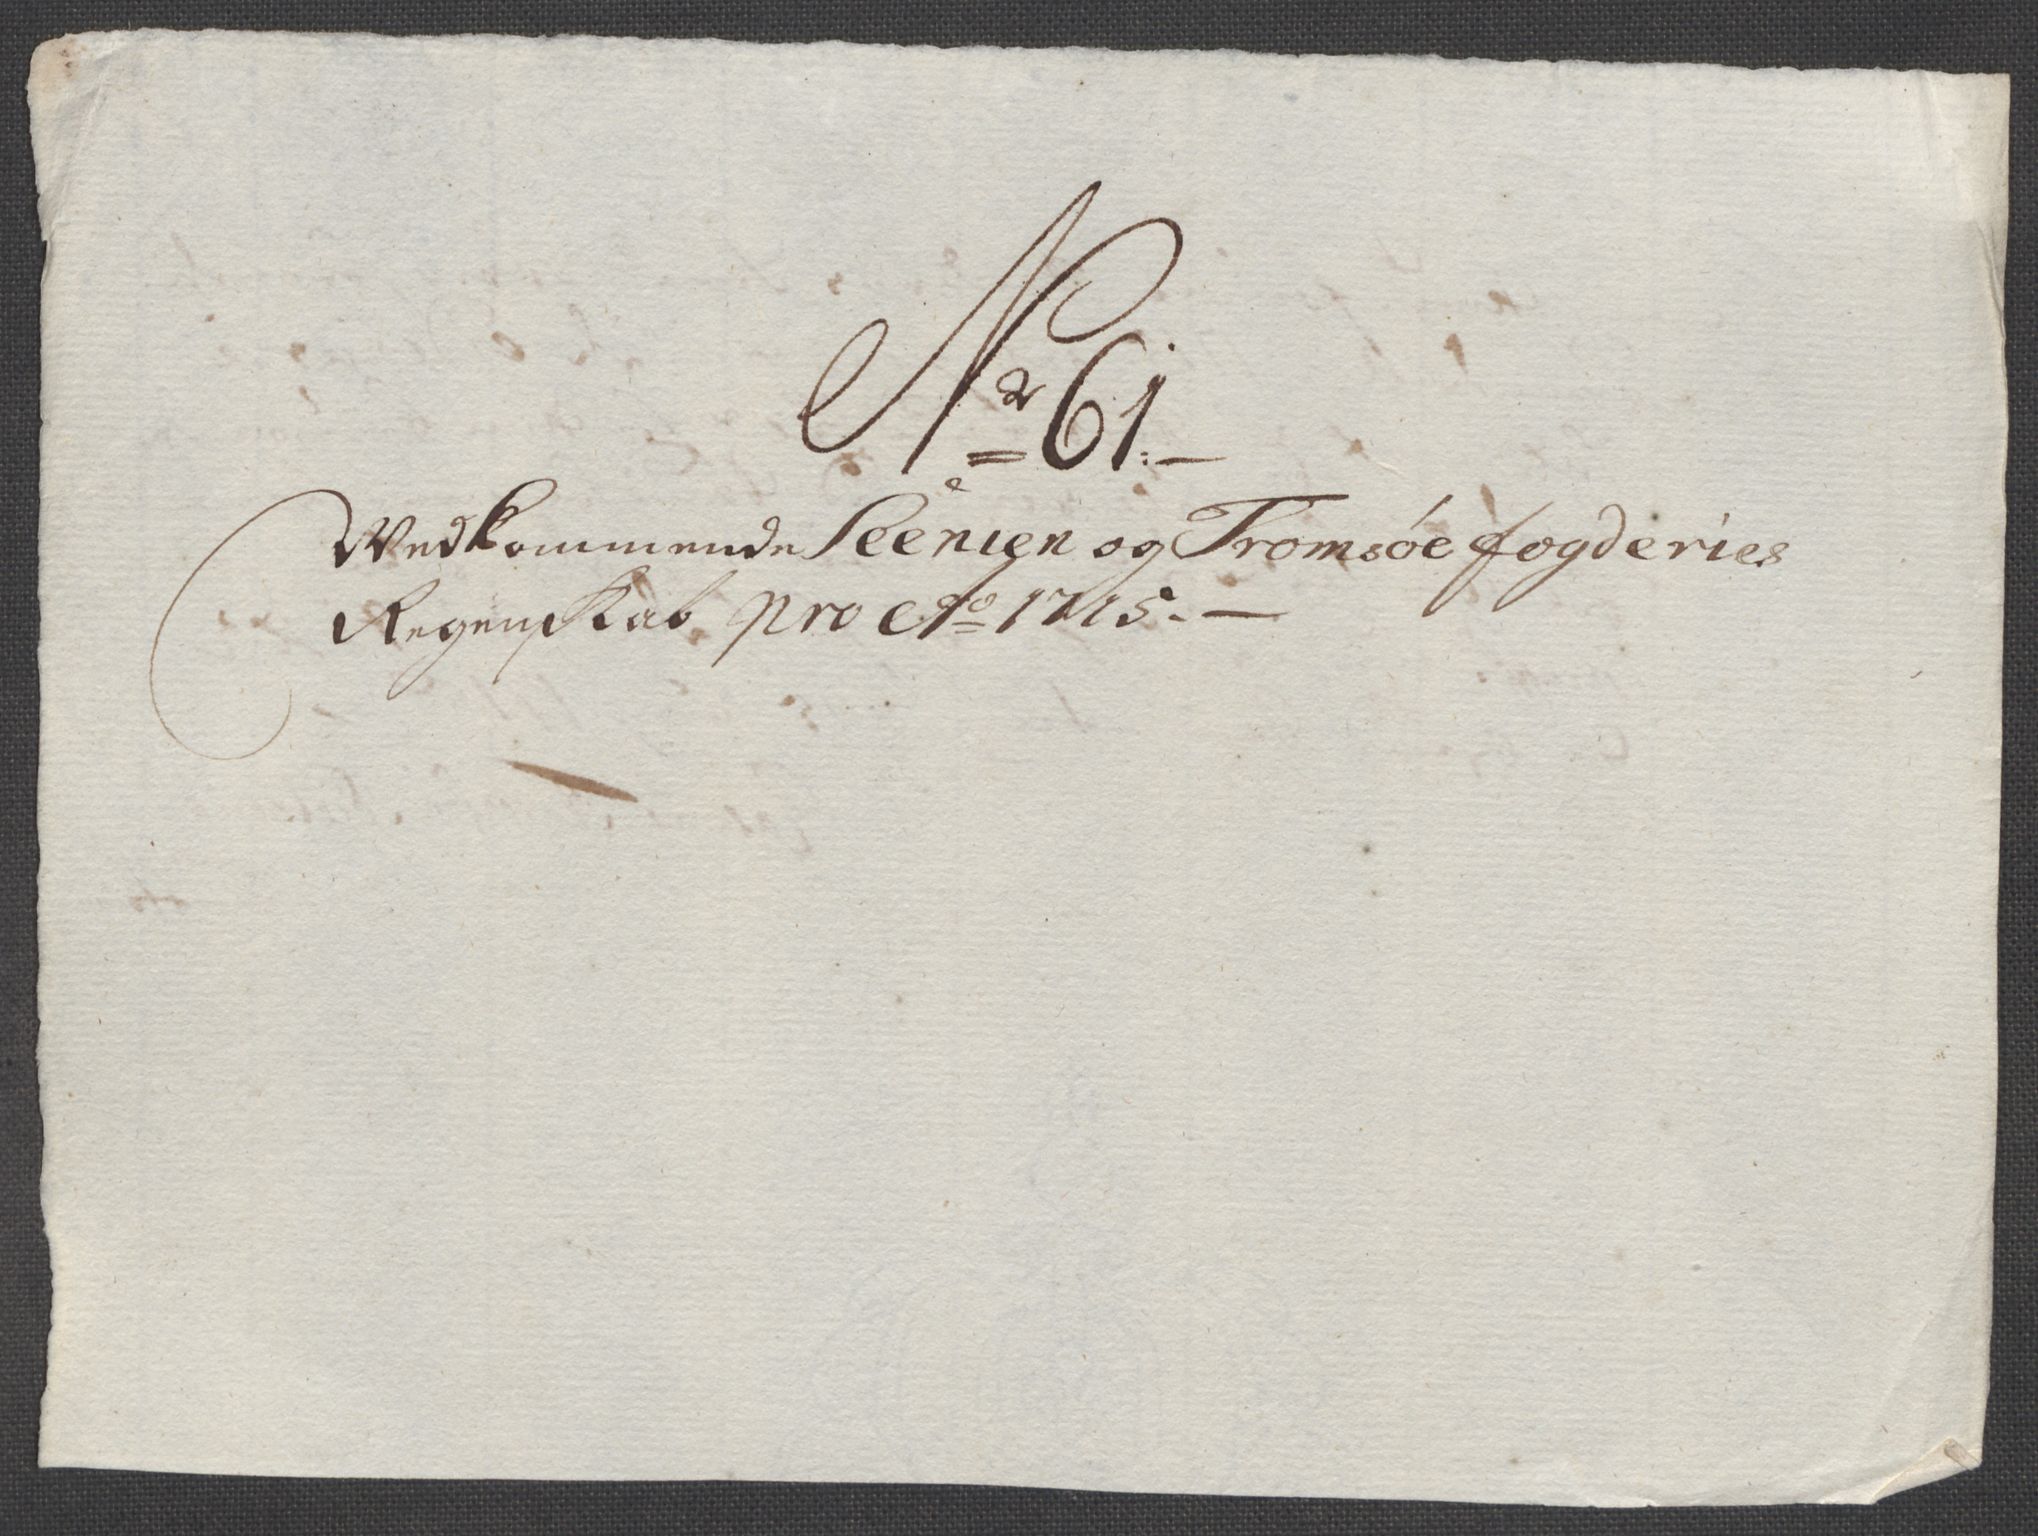 Nr 61.
Vedkommende Seenien og Tromsøe fogderies
Regenskab pro Ao 1715.